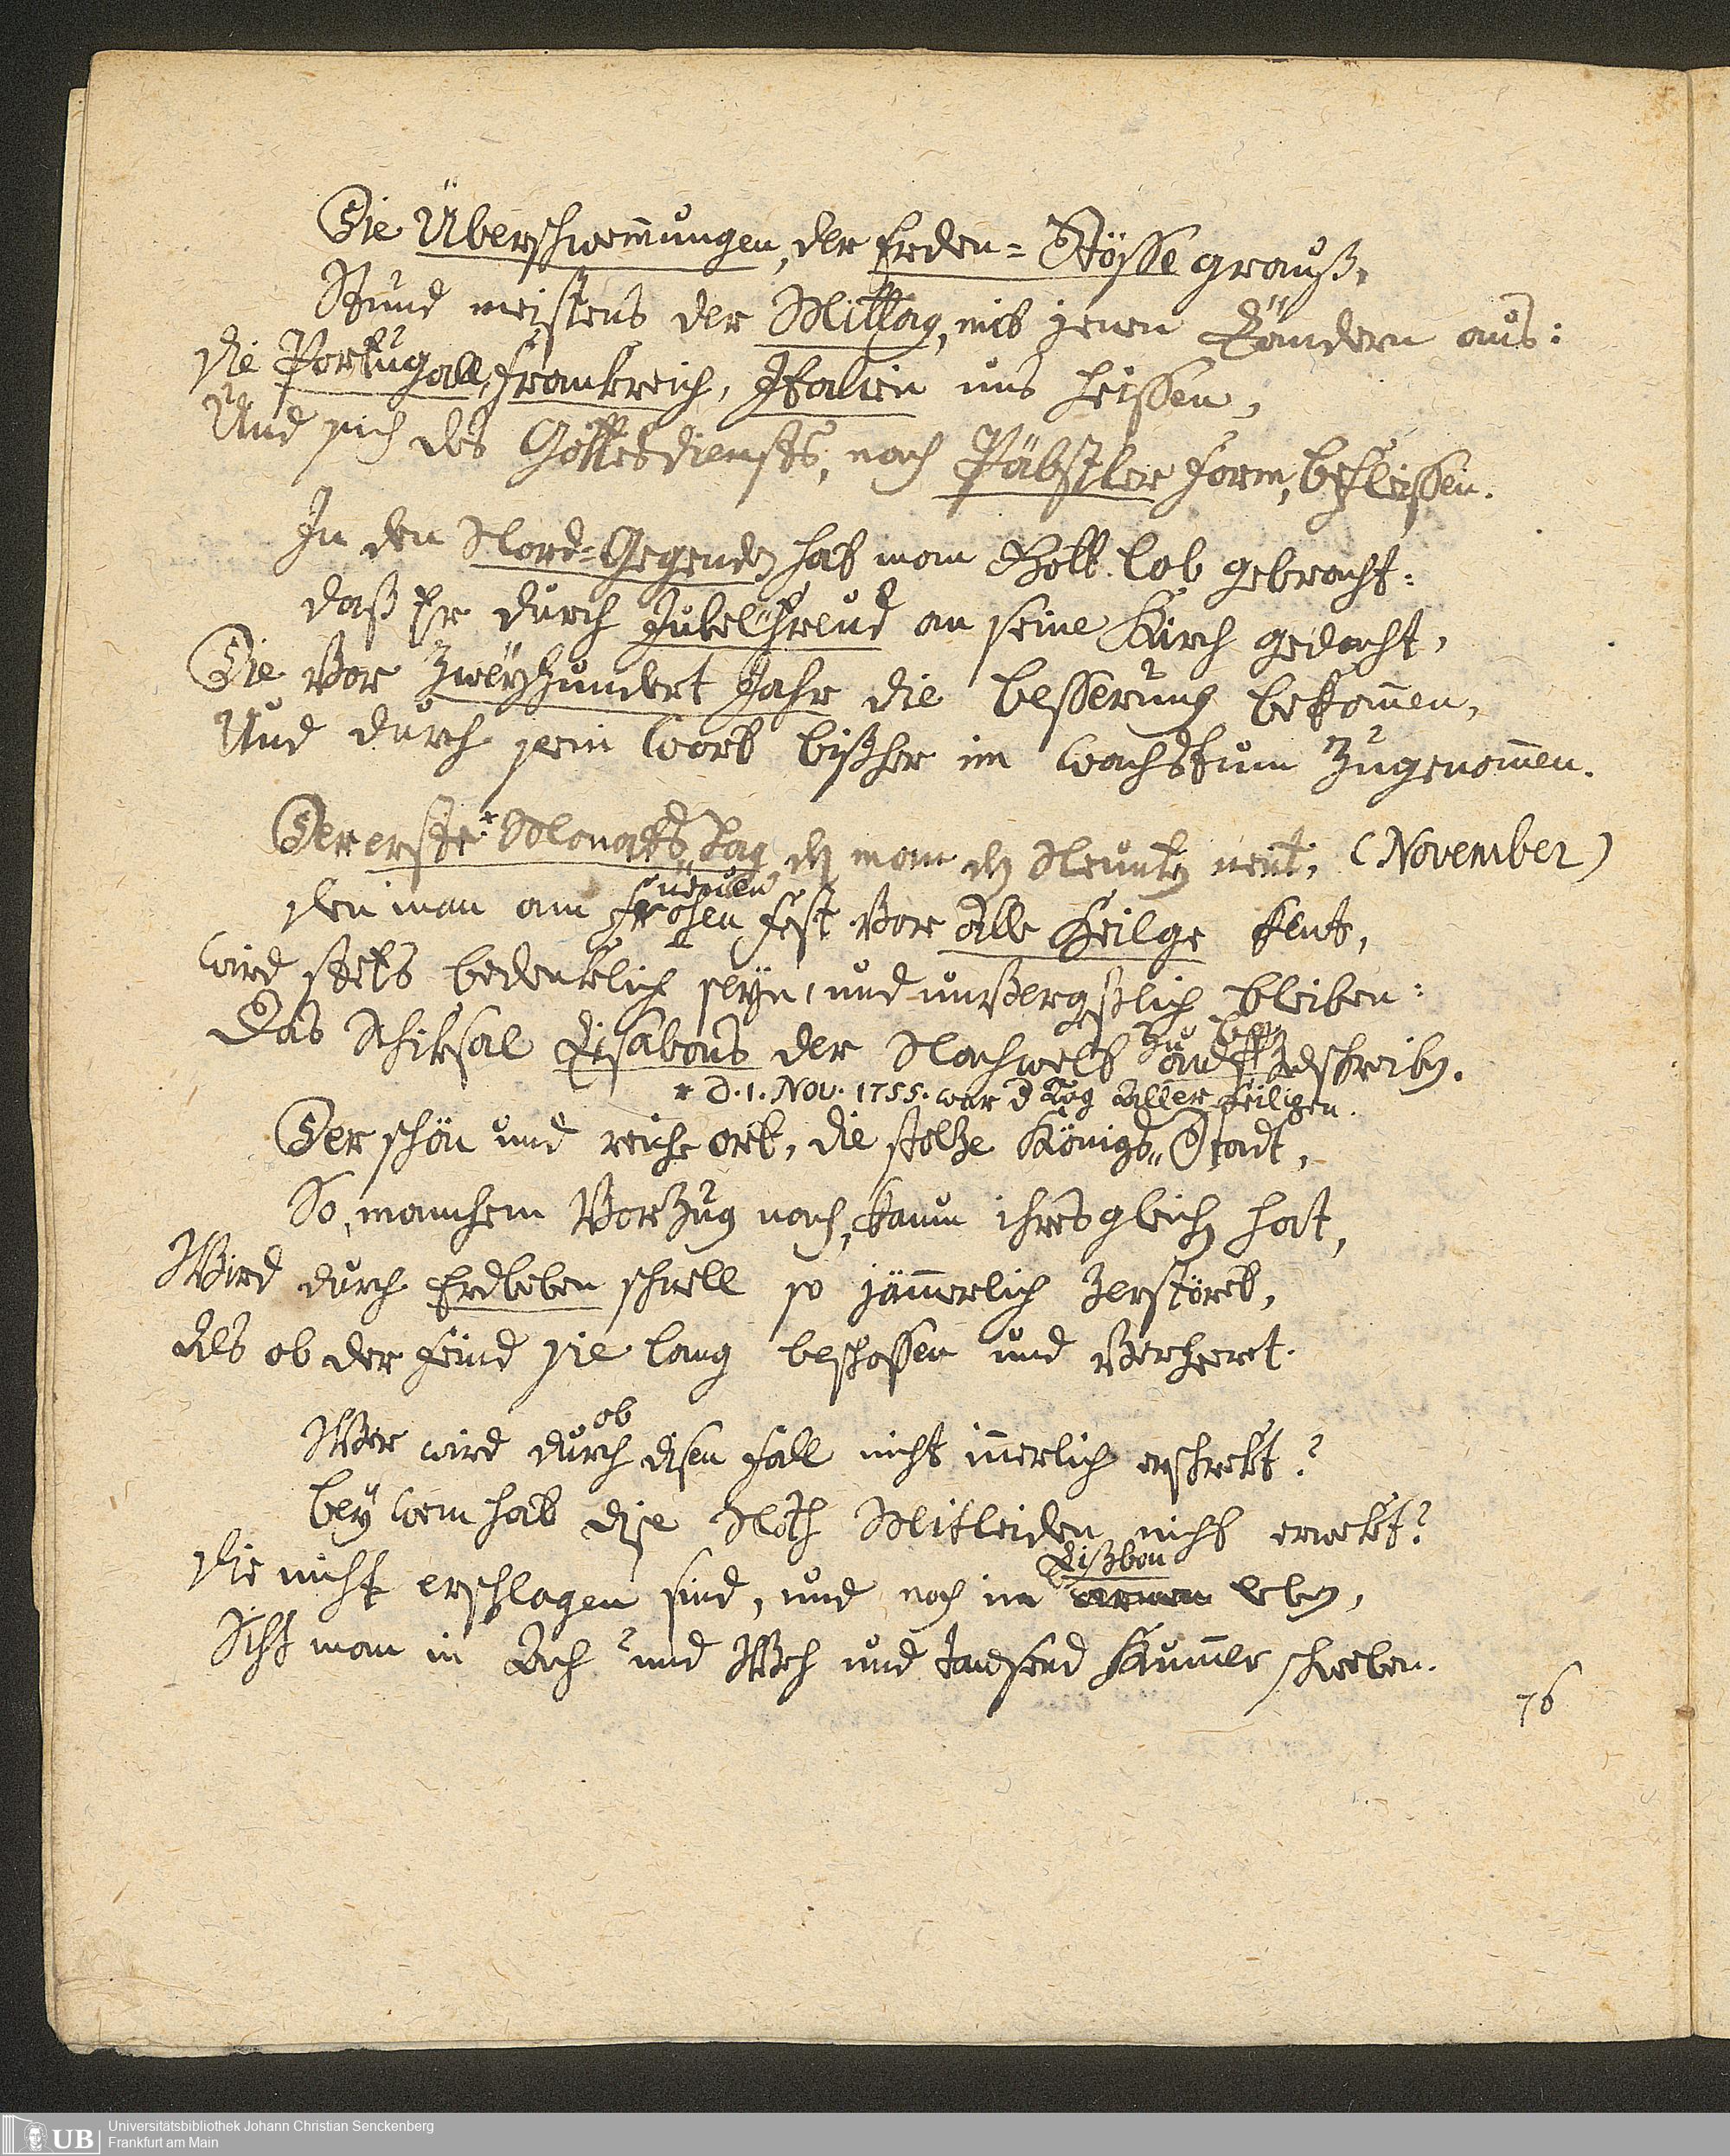 Die Überschwem̄ungen, der Erden=Stösse grauß,
Stund meistens der Mittag, mit jenen Ländern aus:
die Portugall, Frankreich, Italien uns heissen,
Und sich des Gottesdiensts, nach Päbstler Form, befleissen.
In den Nord=Gegenden hat man Gott lob gebracht:
daß Er durch Jubelfreud an seine Kirch gedacht,
Die vor Zweyhundert Jahr die besserung bekom̄en,
Und durch sein Wort bißher im Wachstum Zugenom̄en.
Der erste* Monats Tag, den man den Neunten nent, (November)
den man am frohen Fest vor alle Heilge kent,
Wird stets bedenklich seyn, und unvergeßlich bleiben:
Das Schiksal Lisabons der Nachwelt zu beschreiben.
* d. 1. Nov. 1755. war d Tag Aller Heiligen.
Der schön und reiche ort, die stoltze Königs„Stadt,
So, manchem Vorzug nach, kaum ihres gleichen hat,
Wird durch Erdbeben schnell so jäm̄erlich Zerstöret,
Als ob der Feind sie lang beschossen und verheeret.
Wer wird durch ob disen Fall nicht in̄erlich erschrekt?
bey wem hat dise Noth Mitleiden nicht erwekt?
die nicht erschlagen sind, und noch in Lißbon leben,
Siht man in Ach und Weh und tausend Kum̄er schweben.
76
UB
Universitätsbibliothek Johann Christian Senckenberg
Frankfurt am Main